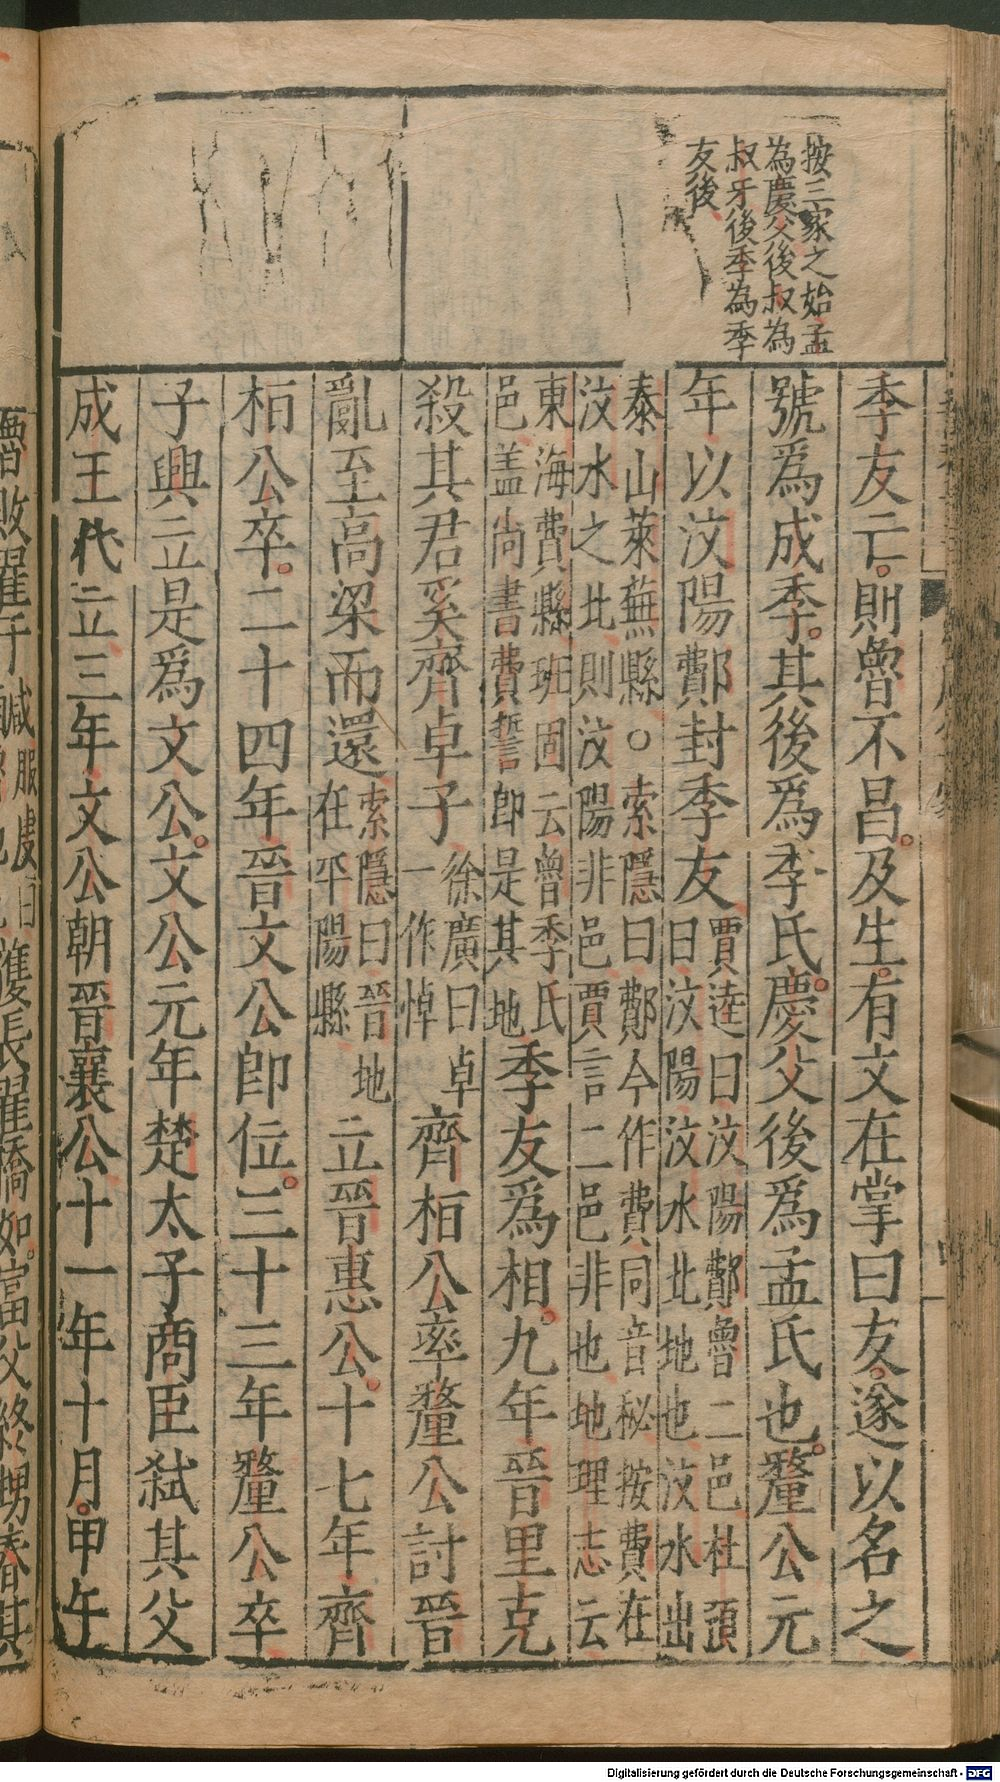 按三家之始孟
為慶父後叔為
叔牙後季為季
友後
季友亡則魯不昌及生有文在掌曰友遂以名之
號爲成季其後爲季氏慶父後爲孟氏也釐公元
年以汶陽鄪封季友
賈逵曰汶陽鄪魯二邑杜預
曰汶陽汶水北地也汶水出
泰山萊蕪縣○索隱曰鄪今作費同音秘按費在
汶水之北則汶陽非邑賈言二邑非也地理志云
東海費縣班固云魯季氏
邑盖尚書費誓即是其地
季友爲相九年晉里克
殺其君奚齊卓子
徐廣曰卓
一作悼
齊桓公率釐公討晉
亂至高梁而還
索隱曰晉地
在平陽縣
立晉惠公十七年齊
桓公卒二十四年晉文公即位三十三年釐公卒
子興立是爲文公文公元年楚太子商臣弑其父
成王代立三年文公朝晉襄公十一年十月甲午
Digitalisierung gefördert durch die Deutsche Forschungsgemeinschaft - DFG